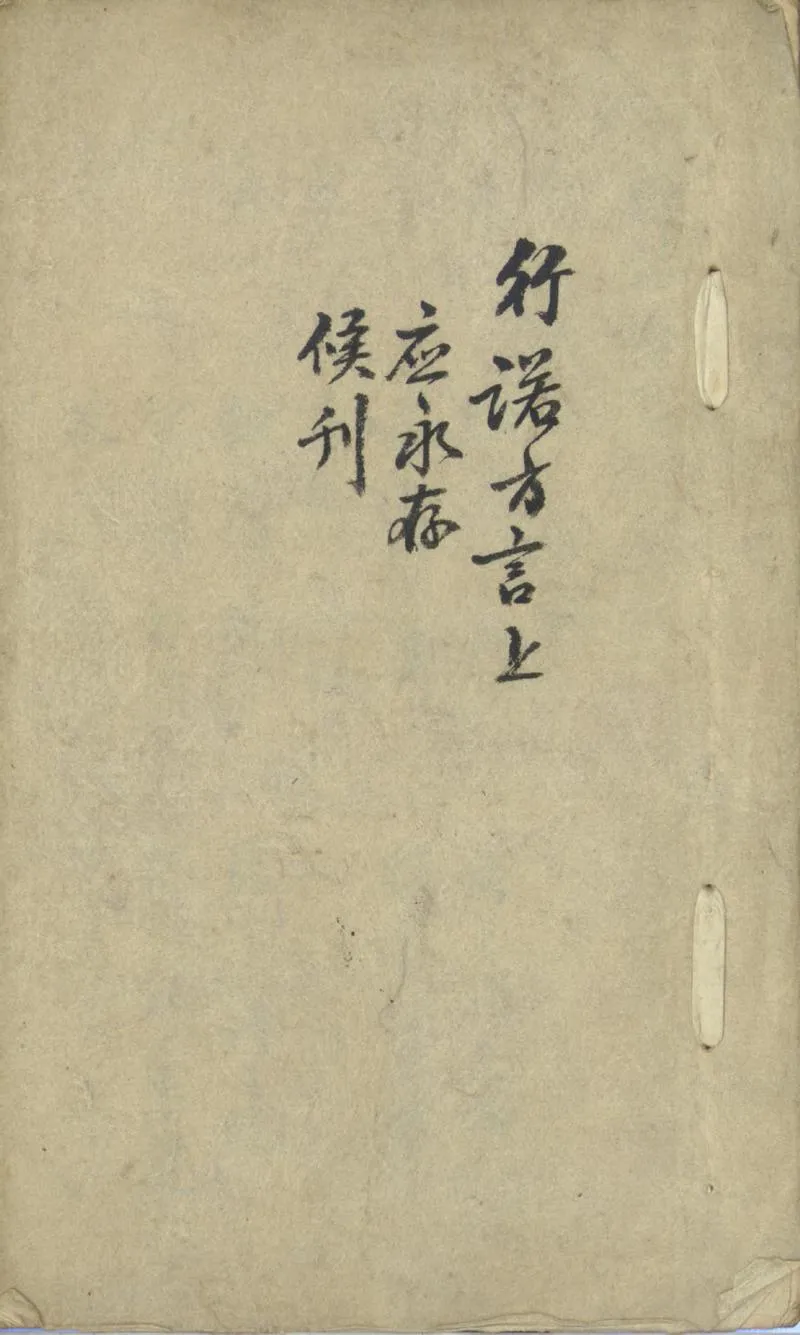 行诺方言上
应永存
候刊